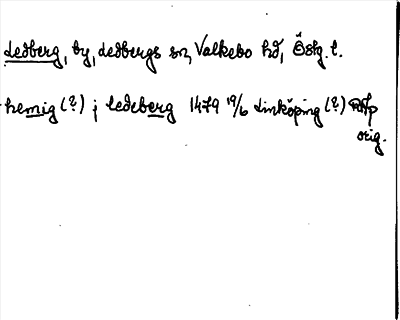 Ledberg, by, Ledbergs sn, Valkebo hd, Östg. l.
hemig (?) i ledeberg 1479 19/6 Linköping (?) RAp
orig.